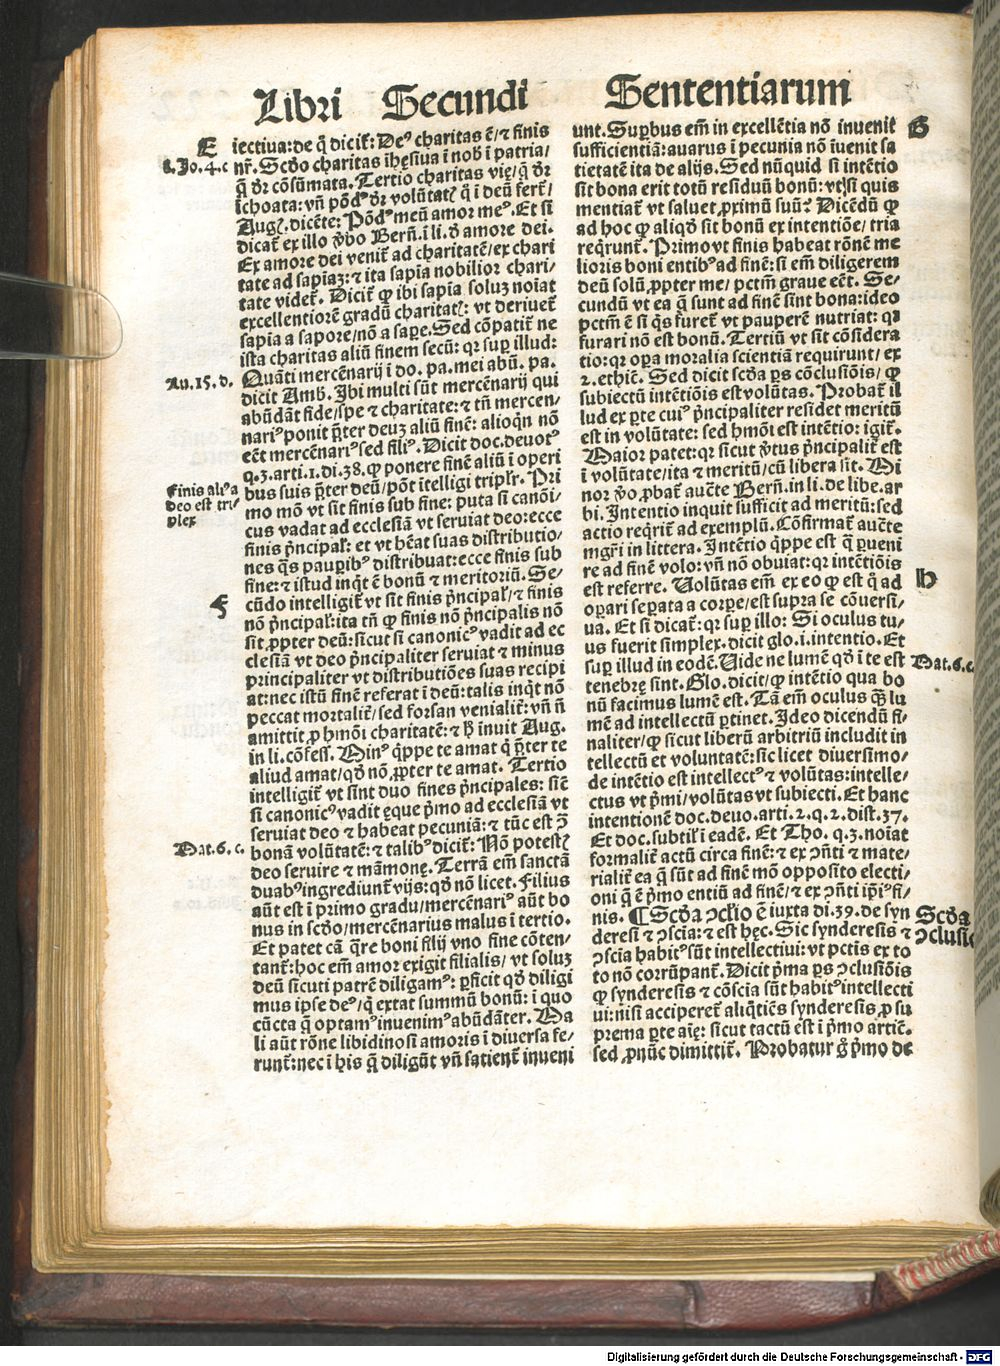 Libri Secundi Sententiarum
E
iectiua: de q̄ dicit᷑: Deꝰ charitas ē/ ⁊ finis
1. Jo. 4. c
nr̄. Scd̄o charitas ihesiua ī nob̄ ī patria/
q̄ dr̄ cōsūmata. Tertio charitas vię/ q̄ dr̄
īchoata: vn̄ pōdꝰ dr̄ volūtat{ꝭ} q̄ ī deū fert᷑/
Augꝭ. dicēte: Pōdꝰ meū amor meꝰ. Et si
dicat᷑ ex illo v̄bo Bern̄. ī li. d̄ amore dei.
Ex amore dei venit᷑ ad charitatē/ ex chari
tate ad sapiaꝫ: ⁊ ita sapia nobilior chari/
tate videt᷑. Dicit᷑ ꝙ ibi sapia soluꝫ noīat
excellentiorē gradū charitatꝭ: vt deriuet᷑
sapia a sapore/ nō a sapē. Sed cōpatit᷑ ne
ista charitas aliū finem secū: qꝛ sup̄ illud:
Au. 15. d.
Quāti mercēnarij ī do. pa. mei abū. pa.
dicit Amb̄. Ibi multi sūt mercēnarij qui
abūdāt fide/ spe ⁊ charitate: ⁊ tn̄ mercen/
nariꝰ ponit p̄ter deuꝫ aliū finē: alioqn̄ nō
eēt mercēnariꝰ sed filiꝰ. Dicit doc. deuotꝰ
q. 3. arti. 1. di. 38. ꝙ ponere finē aliū ī operi
Finis aliꝰ a
deo est tri/
plex
bus suis p̄ter deū/ pōt ītelligi triplr̄. Pri
mo mō vt sit finis sub fine: puta si canōi/
cus vadat ad ecclesiā vt seruiat deo: ecce
finis p̄ncipal᷑: et vt hēat suas distributio/
nes q̄s paup̄ibꝰ distribuat: ecce finis sub
fine: ⁊ istud inqͥt ē bonū ⁊ meritoriū. Se/
F
cūdo intelligit᷑ vt sit finis p̄ncipal᷑/ ⁊ finis
nō p̄ncipal᷑: ita tn̄ ꝙ finis nō p̄ncipalis nō
sit ꝓpter deū: sicut si canonicꝰ vadit ad ec
clesiā vt deo p̄ncipaliter seruiat ⁊ minus
principaliter vt distributiōes suas recipi
at: nec istū finē referat ī deū: talis inqͥt nō
peccat mortalit᷑/ sed forsan venialit᷑: vn̄ n̄
amittit ꝓ hmōi charitatē: ⁊ h̄ inuit Aug.
in li. cōfess. Minꝰ qͥppe te amat qͥ p̄ter te
aliud amat/ qd̄ nō ꝓpter te amat. Tertio
intelligit᷑ vt sint duo fines p̄ncipales: siē
si canonicꝰ vadit ęque p̄mo ad ecclesiā vt
seruiat deo ⁊ habeat pecuniā: ⁊ tūc est ↄ̄
Mat. 6. c.
bonā volūtatē: ⁊ talibꝰ dicit᷑: Nō potestꝭ
deo seruire ⁊ māmonę. Terrā em̄ sanctā
duabꝰ ingrediunt᷑ vijs: qd̄ nō licet. Filius
aūt est ī primo gradu/ mercēnariꝰ aūt bo
nus in scd̄o/ mercēnarius malus ī tertio.
Et patet cā q̄re boni filij vno fine cōten/
tant᷑: hoc em̄ amor exigit filialis/ vt soluꝫ
deū sicuti patrē diligamꝰ: ꝑficit qd̄ diligi
mus ip̄se deꝰ/ qͥ extat summū bonū: ī quo
cūcta q̄ optamꝰ inuenimꝰ abūdāter. Ma
li aūt rōne libidinosi amoris ī diuersa fe/
runt᷑: nec ī his q̄ diligūt vn̄ satient᷑ inueni
unt. Suꝑbus em̄ in excellētia nō inuenit
G
sufficientiā: auarus ī pecunia nō īuenit sa
tietatē ita de alijs. Sed nūquid si intētio
sit bona erit totū residuū bonū: vtputa si quis
mentiat᷑ vt saluet ꝓximū suū? Dicēdū ꝙ
ad hoc ꝙ aliqd̄ sit bonū ex intentiōe/ tria
reqͥrunt᷑. Primo vt finis habeat rōnē me
lioris boni entibꝰ ad finē: si em̄ diligerem
deū solū ꝓpter me/ pctm̄ graue eēt. Se/
cundū vt ea q̄ sunt ad finē sint bona: ideo
pctm̄ ē si qͥs furet᷑ vt pauperē nutriat: qꝛ
furari nō est bonū. Tertiū vt sit cōsidera
tio: qꝛ oꝑa moralia scientiā requirunt/ ex
2. ethic̄. Sed dicit scd̄a ꝑs cōclusiōis/ ꝙ
subiectū intētiōis est volūtas. Probat᷑ il
lud ex ꝑte cuiꝰ p̄ncipaliter residet meritū
est in volūtate: sed hmōi est intētio: igit᷑.
Maior patet: qꝛ sicut v̓tus p̄ncipalit᷑ est
ī volūtate/ ita ⁊ meritū/ cū libera sit. Mi
nor v̓o ꝓbat᷑ aucte Bern̄. in li. de libe. ar
bi. Intentio inquit sufficit ad meritū: sed
actio reqͥrit᷑ ad exemplū. Cōfirmat᷑ aucte
mgr̄i in littera. Intētio qͥppe est q̄ ꝑueni
re ad finē volo: vn̄ nō obuiat: qꝛ intētiōis
est referre. Volūtas em̄ ex eo ꝙ est q̄ ad
h
oꝑari seꝑata a corꝑe/ est supra se cōuersi/
ua. Et si dicat᷑: qꝛ sup̄ illo: Si oculus tu/
us fuerit simplex. dicit glo. i. intentio. Et
sup̄ illud in eodē. Uide ne lumē qd̄ ī te est
Mat. 6. c.
tenebrę sint. Glo. dicit/ ꝙ intētio qua bo
nū facimus lumē est. Tā em̄ oculus q̄ꝫ lu
mē ad intellectū ꝑtinet. Ideo dicendū fi/
naliter/ ꝙ sicut liberū arbitriū includit in
tellectū et voluntatē: sic licet diuersimo/
de intētio est intellectꝰ ⁊ volūtas: intelle/
ctus vt p̄mi/ volūtas vt subiecti. Et hanc
intentionē doc. deuo. arti. 2. q. 2. dist. 37.
Et doc. subtil᷑ ī eadē. Et Tho. q. 3. noīat
formalit᷑ actū circa finē: ⁊ ex ↄn̄ti ⁊ mate/
rialit᷑ ea q̄ sūt ad finē mō opposito electi/
oni q̄ ē p̄mo entiū ad finē/ ⁊ ex ↄn̄ti ip̄iꝰ fi/
nis. ¶ Scd̄a ↄclō ē iuxta di. 39. de syn
Scd̄a
ↄclusio
deresi ⁊ ↄscia: ⁊ est hęc. Sic synderesis ⁊
ↄscia habitꝰ sūt intellectiui: vt pctis ex to
to nō corrūpant᷑. Dicit p̄ma ꝑs ↄclusiōis
ꝙ synderesis ⁊ cōscia sūt habitꝰ intellecti
ui: nisi acciperet᷑ aliqͣtiēs synderesis ꝓ su
prema ꝑte aīę: sicut tactū est ī p̄mo artic̄.
sed ꝓnūc dimittit᷑. Probatur g̊ p̄mo de
Digitalisierung gefördert durch die Deutsche Forschungsgemeinschaft - DFG